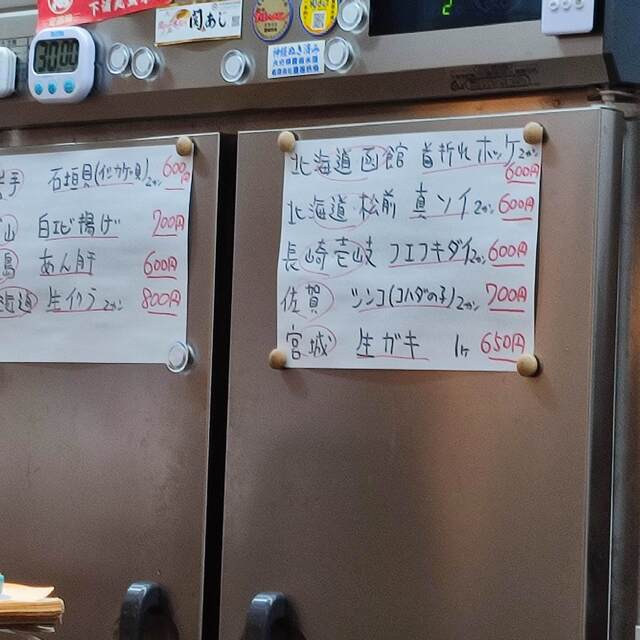 関あじ
神経ぬき済み
岩手 石垣貝(イシカゲ貝)2カン 600円
山 白エビ揚げ 700円
島 あん肝 600円
北海道 生イクラ 2カン 800円
北海道 函館 首折れホッケ 2カン 600円
北海道 松前 真ソイ 2カン 600円
長崎壱岐 フエフキダイ 2カン 600円
佐賀 シンコ(コハダの子)2カン 700円
宮城 生ガキ 1ケ 650円